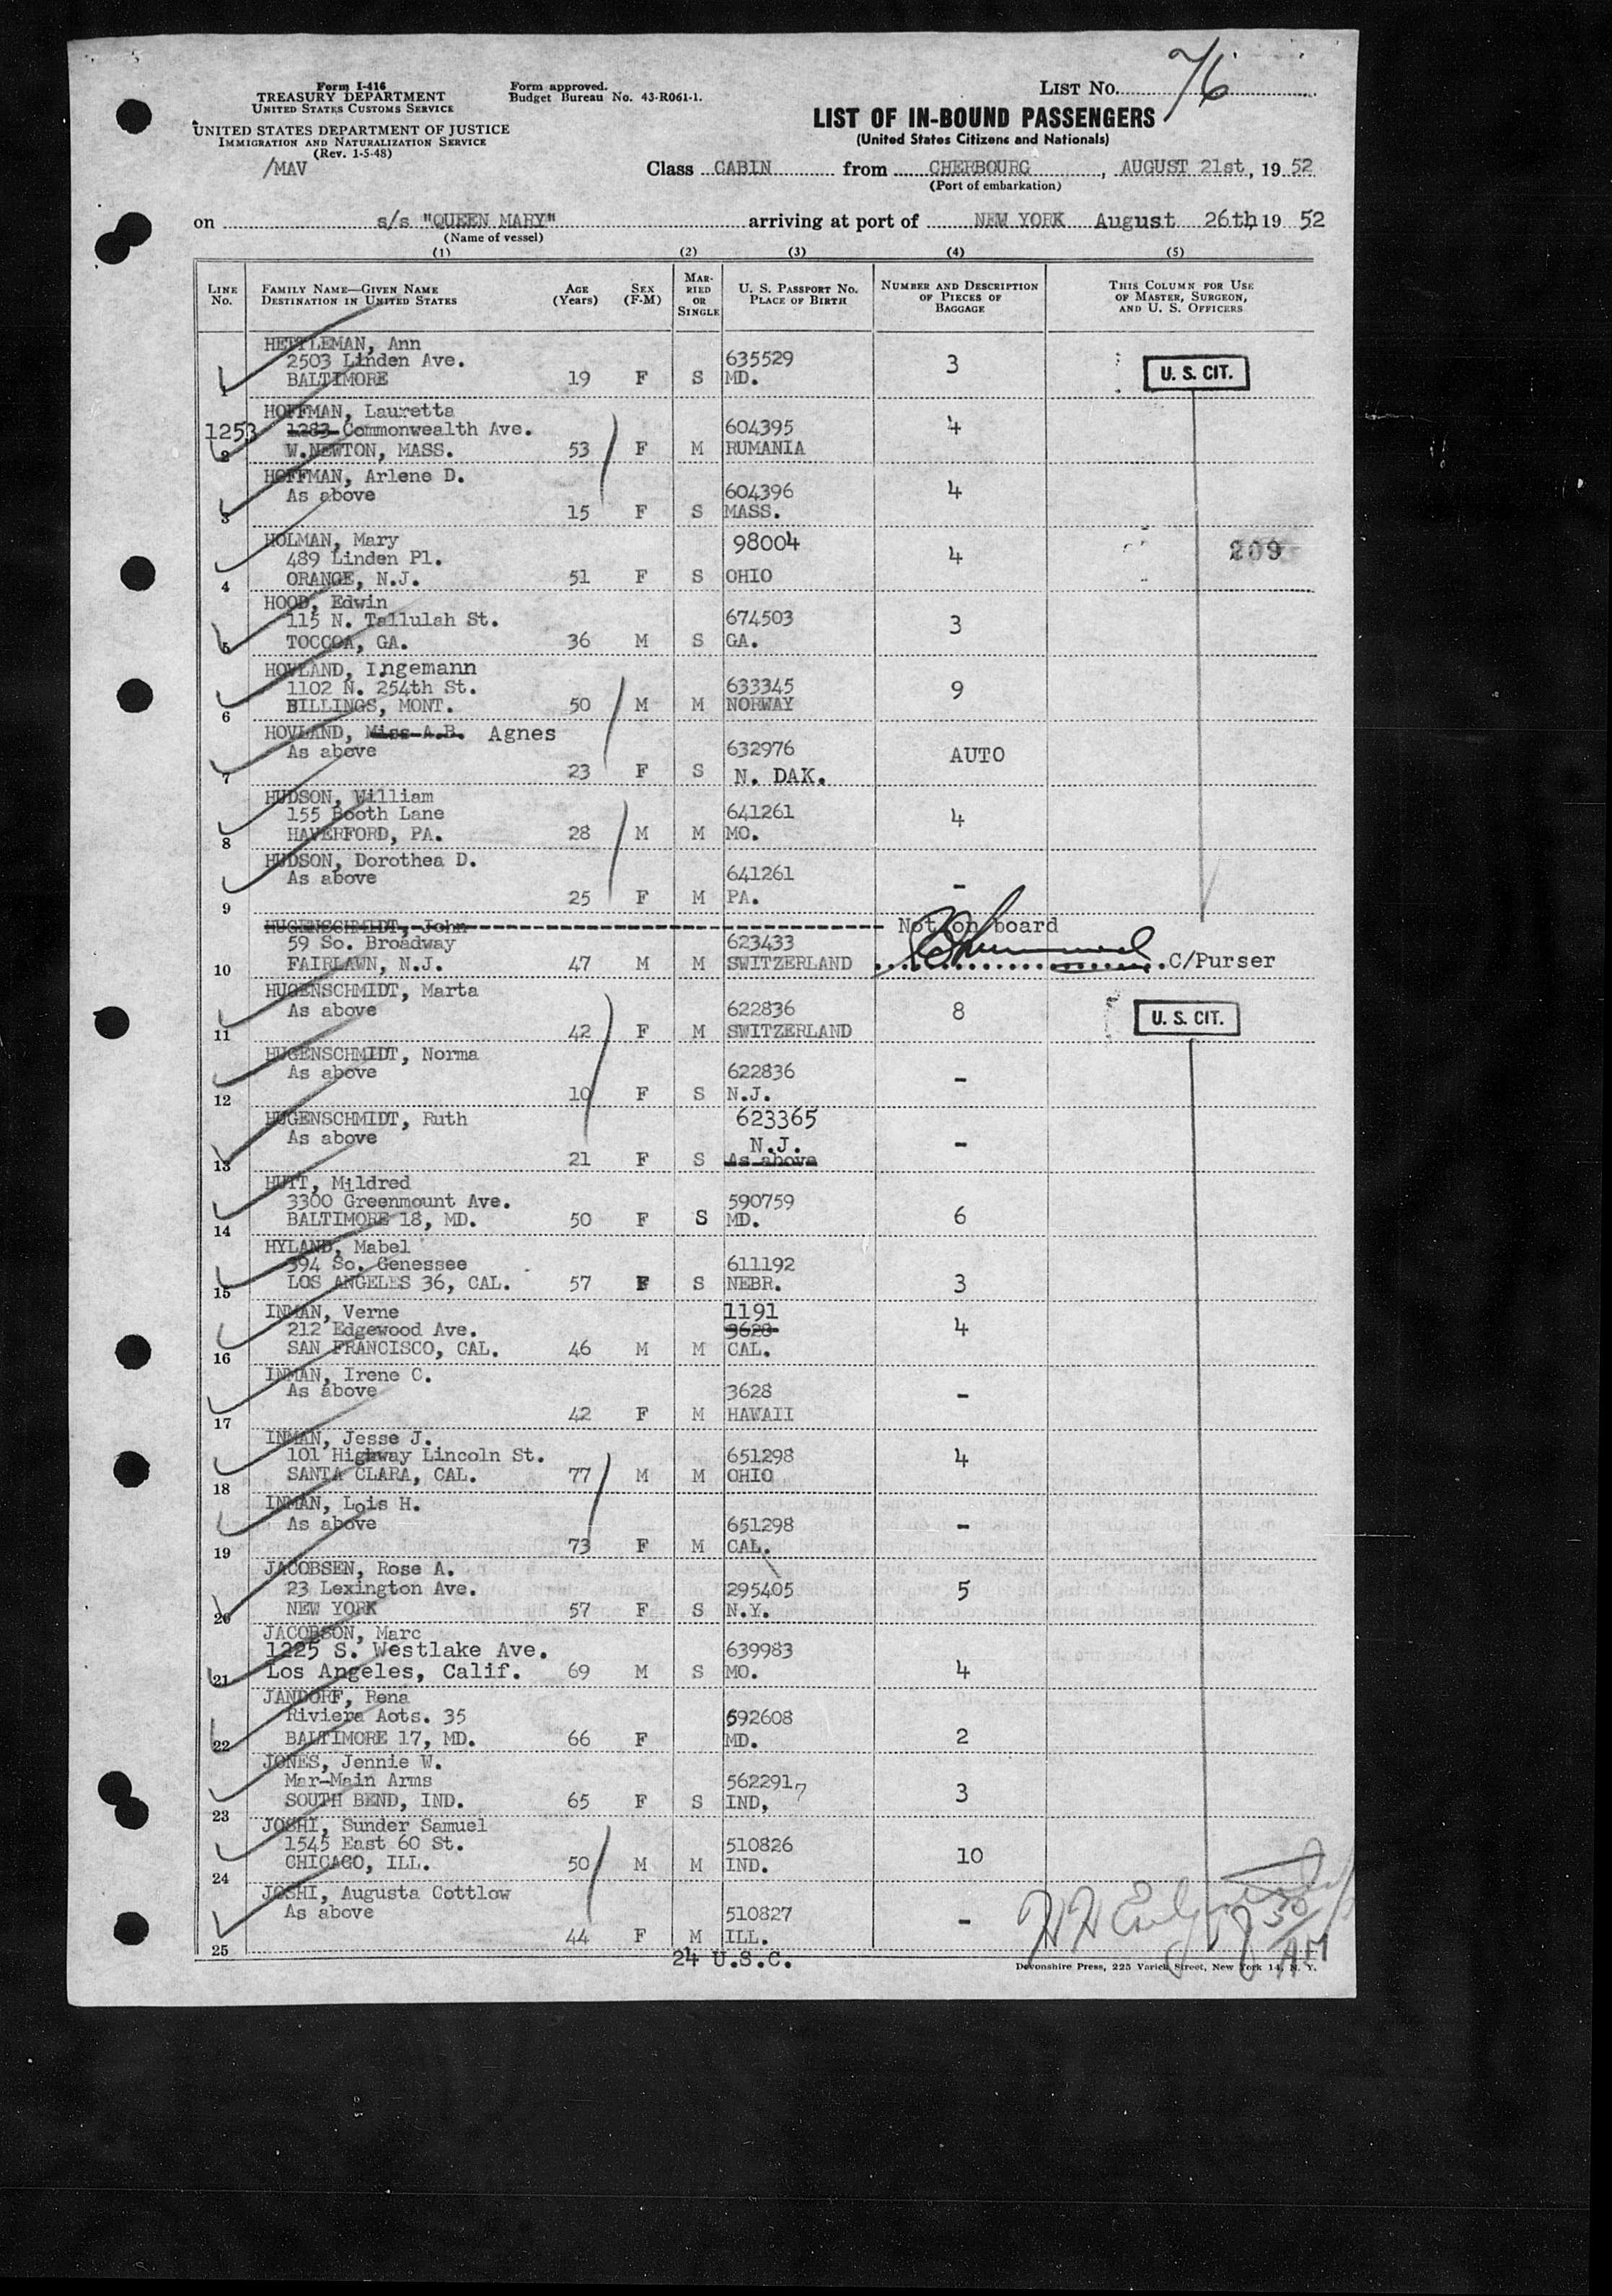 Form I-416
TREASURY DEPARTMENT
UNITED STATES CUSTOMS SERVICE
UNITED STATES DEPARTMENT OF JUSTICE
IMMIGRATION AND NATURALIZATION SERVICE
(Rev. 1-5-48)
/MAV
Form approved.
Budget Bureau No. 43-R061-1.
LIST No. 76
LIST OF IN-BOUND PASSENGERS
(United States Citizens and Nationals)
Class CABIN from CHERBOURG, AUGUST 21st, 19 52
(Port of embarkation)
on s/s "QUEEN MARY" arriving at port of NEW YORK August 26th, 19 52
(Name of vessel)
(1) (2) (3) (4) (5)
LINE No. FAMILY NAME—GIVEN NAME DESTINATION IN UNITED STATES AGE (Years) SEX (F-M) MARRIED OR SINGLE U. S. PASSPORT NO. PLACE OF BIRTH NUMBER AND DESCRIPTION OF PIECES OF BAGGAGE THIS COLUMN FOR USE OF MASTER, SURGEON, AND U. S. OFFICERS
HETTLEMAN, Ann
2503 Linden Ave. 635529 3 U. S. CIT.
1 BALTIMORE 19 F S MD.
HOFFMAN, Lauretta
1253 1283 Commonwealth Ave. 604395 4
2 W.NEWTON, MASS. 53 F M RUMANIA
HOFFMAN, Arlene D.
As above 604396 4
3 15 F S MASS.
HOLMAN, Mary 98004
489 Linden Pl. 4 209
4 ORANGE, N.J. 51 F S OHIO
HOOD, Edwin
115 N. Tallulah St. 674503 3
5 TOCCOA, GA. 36 M S GA.
HOVLAND, Ingemann
1102 N. 254th St. 633345 9
6 BILLINGS, MONT. 50 M M NORWAY
HOVLAND, Miss A.B. Agnes
As above 632976 AUTO
7 23 F S N. DAK.
HUDSON, William
155 Booth Lane 641261 4
8 HAVERFORD, PA. 28 M M MO.
HUDSON, Dorothea D.
As above 641261 -
9 25 F M PA.
HUGENSCHMIDT, John Not on board
59 So. Broadway 623433
10 FAIRLAWN, N.J. 47 M M SWITZERLAND C/Purser
HUGENSCHMIDT, Marta
As above 622836 8 U. S. CIT.
11 42 F M SWITZERLAND
HUGENSCHMIDT, Norma
As above 622836 -
12 10 F S N.J.
HUGENSCHMIDT, Ruth 623365
As above N.J. -
13 21 F S As above
HUTT, Mildred
3300 Greenmount Ave. 590759
14 BALTIMORE 18, MD. 50 F S MD. 6
HYLAND, Mabel
394 So. Genessee 611192
15 LOS ANGELES 36, CAL. 57 F S NEBR. 3
INMAN, Verne 1191
212 Edgewood Ave. 3628 4
16 SAN FRANCISCO, CAL. 46 M M CAL.
INMAN, Irene C.
As above 3628 -
17 42 F M HAWAII
INMAN, Jesse J.
101 Highway Lincoln St. 651298 4
18 SANTA CLARA, CAL. 77 M M OHIO
INMAN, Lois H.
As above 651298 -
19 73 F M CAL.
JACOBSEN, Rose A.
23 Lexington Ave. 295405 5
20 NEW YORK 57 F S N.Y.
JACOBSON, Marc
1225 S. Westlake Ave. 639983
21 Los Angeles, Calif. 69 M S MO. 4
JANDORF, Rena
Riviera Aots. 35 592608
22 BALTIMORE 17, MD. 66 F MD. 2
JONES, Jennie W.
Mar-Main Arms 562291 7 3
23 SOUTH BEND, IND. 65 F S IND,
JOSHI, Sunder Samuel
1545 East 60 St. 510826 10
24 CHICAGO, ILL. 50 M M IND.
JOSHI, Augusta Cottlow
As above 510827 -
25 44 F M ILL.
24 U.S.C.
730 AM
Devonshire Press, 225 Varick Street, New York 14, N. Y.